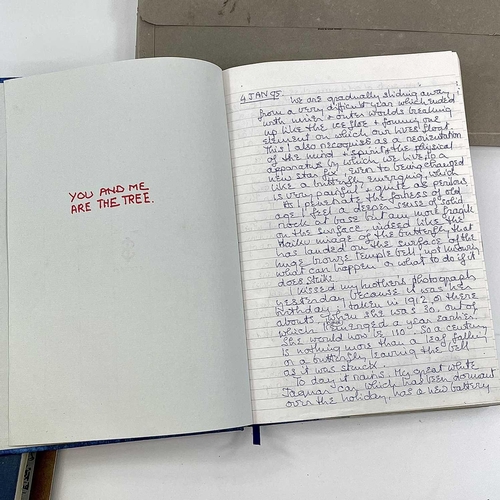 YOU AND ME
ARE THE TREE.
4 JAN 95. We are gradually sliding away
from a very difficult year which ended
with inner + outer worlds breaking
up like the ice floe + forming one
element on which our lives float.
This I also recognise as a
of the mind + spirit + the physical
apparatus by which we live, to a
new star fix, even to being changed
like a butterfly emerging, which
is very painful + quite as perilous.
As I penetrate the forest of old
age I feel a deeper sense of solid
rock at base but am more fragile
on the surface, indeed like the
Haiku image of the butterfly that
has landed on the surface of the
huge bronze temple bell; not knowing
what can happen or what to do if it
does strike.
I kissed my mother's photograph
yesterday because it was her
birthday: taken in 1912, or there
abouts when she was 30. out of
which I emerged a year earlier
she would now be 110. So a century
is nothing more than a leaf falling
or a butterfly leaving the bell
as it was struck.
To day it rains. My great white
Jaguar car which has been dormant
over the holiday, has a new battery